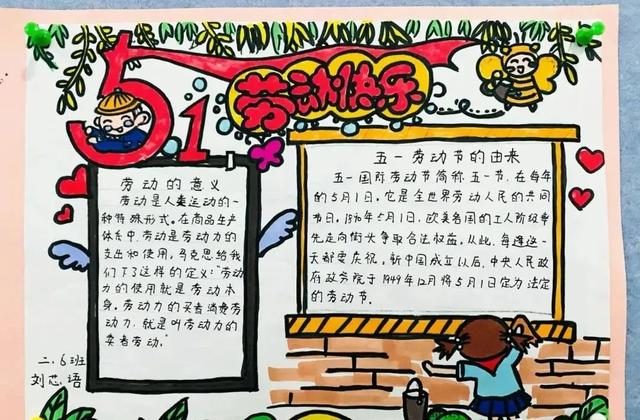 51
劳动快乐
劳动的意义
劳动是人类运动的一
种特殊形式。在商品生产
体系中,劳动是劳动力的
支出和使用。马克思给我
们下了这样的定义:“劳动
力的使用就是劳动本
身。劳动力的买者消费劳
动力,就是叫劳动力的
卖者劳动。”
二.6班
刘芯语
五一劳动节的由来
五一国际劳动节简称五一节,在每年
的5月1日。它是全世界劳动人民的共同
节日。1890年5月1日,欧美各国的工人阶级率
先走向街头争取合法权益。从此,每逢这一
天都要庆祝。新中国成立以后,中央人民政
府政务院于1949年12月将5月1日定为法定
的劳动节。